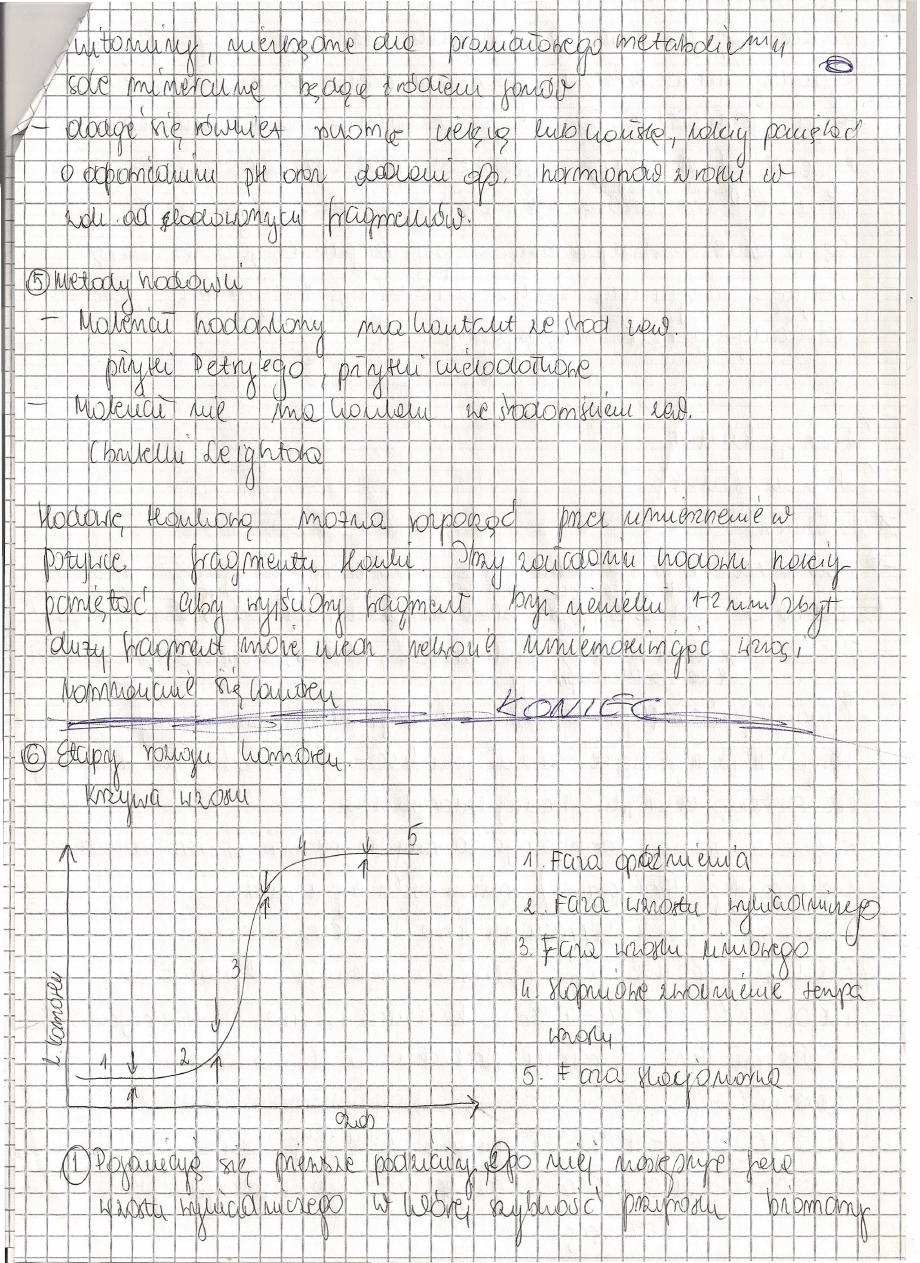 witaminy, niezbędne dla prawidłowego metabolizmu
sole mineralne będące źródłem jonów
- dodaje się również należy pamiętać
o odpowiednim pH oraz dodaniu op. hormonów wzrostu w
zal. od fragmentów.
⑤ Metody hodowli
- Materiał hodowlany ma kontakt ze środ zew.
płytki Petry'ego, płytki wielodołkowe
- Materiał nie ma kontaktu ze środowiskiem zew.
(butelki Leightona
Hodowlę tkankową można rozpocząć przez umieszczenie w
pożywce fragmentu tkanki. Przy zakładaniu hodowli należy
pamiętać aby wyjściowy fragment był niewielki 1-2 mm³ zbyt
duży fragment może ulec nekrozie uniemożliwiając wzrost i
namnażanie się komórek
KONIEC
⑥ Etapy rozwoju komórek.
Krzywa wzrostu
l. komórek
1 2 3 4 5
czas
1. Faza opóźnienia
2. Faza wzrostu wykładniczego
3. Faza wzrostu liniowego
4. Stopniowe zwolnienie tempa
wzrostu
5. Faza stacjonarna
① Pojawiają się pierwsze podziały, ② po niej następuje faza
wzrostu wykładniczego w której szybkość przyrostu biomasy